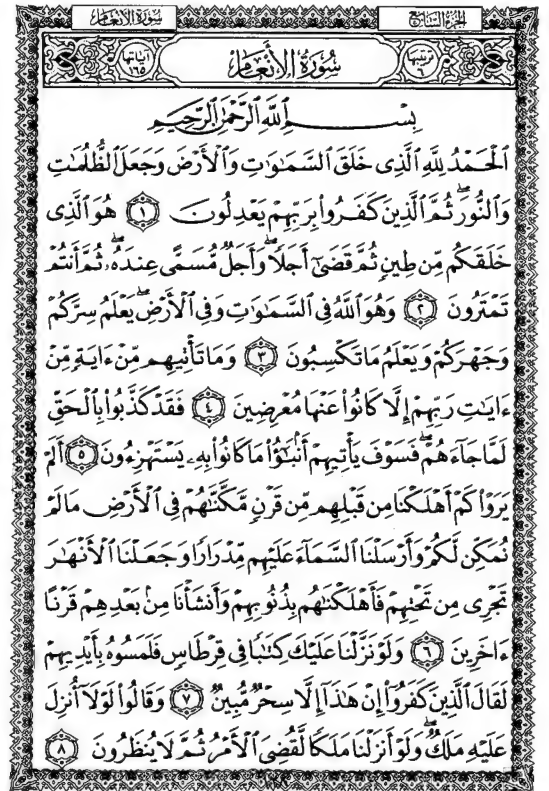 سُورَةُ الأَنْعَام
الجُزْءُ السَّابِعُ
آيَاتُهَا ١٦٥
سُورَةُ الأَنْعَام
تَرْتِيبُهَا ٦
بِسْمِ ٱللَّهِ ٱلرَّحْمَٰنِ ٱلرَّحِيمِ
ٱلْحَمْدُ لِلَّهِ ٱلَّذِى خَلَقَ ٱلسَّمَٰوَٰتِ وَٱلْأَرْضَ وَجَعَلَ ٱلظُّلُمَٰتِ
وَٱلنُّورَ ۖ ثُمَّ ٱلَّذِينَ كَفَرُوا۟ بِرَبِّهِمْ يَعْدِلُونَ ١ هُوَ ٱلَّذِى
خَلَقَكُم مِّن طِينٍ ثُمَّ قَضَىٰٓ أَجَلًا ۖ وَأَجَلٌ مُّسَمًّى عِندَهُۥ ۖ ثُمَّ أَنتُمْ
تَمْتَرُونَ ٢ وَهُوَ ٱللَّهُ فِى ٱلسَّمَٰوَٰتِ وَفِى ٱلْأَرْضِ ۖ يَعْلَمُ سِرَّكُمْ
وَجَهْرَكُمْ وَيَعْلَمُ مَا تَكْسِبُونَ ٣ وَمَا تَأْتِيهِم مِّنْ ءَايَةٍ مِّنْ
ءَايَٰتِ رَبِّهِمْ إِلَّا كَانُوا۟ عَنْهَا مُعْرِضِينَ ٤ فَقَدْ كَذَّبُوا۟ بِٱلْحَقِّ
لَمَّا جَآءَهُمْ ۖ فَسَوْفَ يَأْتِيهِمْ أَنۢبَٰٓؤُا۟ مَا كَانُوا۟ بِهِۦ يَسْتَهْزِءُونَ ٥ أَلَمْ
يَرَوْا۟ كَمْ أَهْلَكْنَا مِن قَبْلِهِم مِّن قَرْنٍ مَّكَّنَّٰهُمْ فِى ٱلْأَرْضِ مَا لَمْ
نُمَكِّن لَّكُمْ وَأَرْسَلْنَا ٱلسَّمَآءَ عَلَيْهِم مِّدْرَارًا وَجَعَلْنَا ٱلْأَنْهَٰرَ
تَجْرِى مِن تَحْتِهِمْ فَأَهْلَكْنَٰهُم بِذُنُوبِهِمْ وَأَنشَأْنَا مِنۢ بَعْدِهِمْ قَرْنًا
ءَاخَرِينَ ٦ وَلَوْ نَزَّلْنَا عَلَيْكَ كِتَٰبًا فِى قِرْطَاسٍ فَلَمَسُوهُ بِأَيْدِيهِمْ
لَقَالَ ٱلَّذِينَ كَفَرُوٓا۟ إِنْ هَٰذَآ إِلَّا سِحْرٌ مُّبِينٌ ٧ وَقَالُوا۟ لَوْلَآ أُنزِلَ
عَلَيْهِ مَلَكٌ ۖ وَلَوْ أَنزَلْنَا مَلَكًا لَّقُضِىَ ٱلْأَمْرُ ثُمَّ لَا يُنظَرُونَ ٨